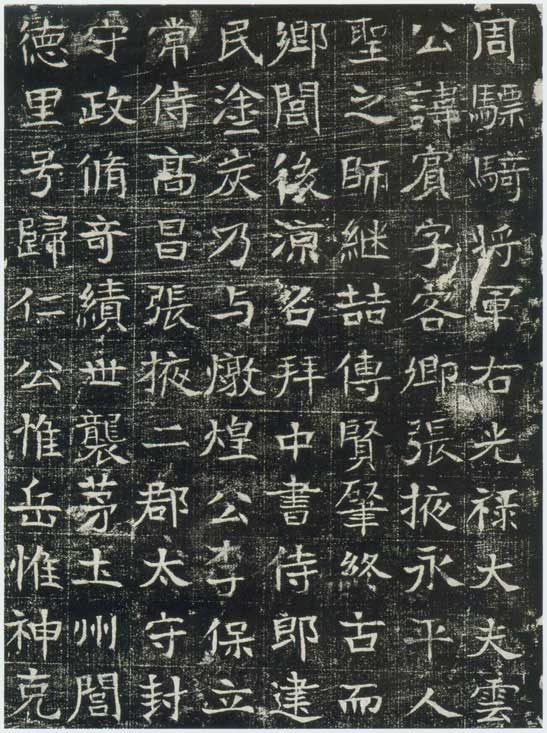 周驃騎将軍右光禄大夫雲
公諱賓字客卿張掖永平人
聖之師継喆傳賢肇終古而
鄉閭後涼召拜中書侍郎建
民塗炭乃与燉煌公李保立
常侍高昌張掖二郡太守封
守政脩奇績世襲茅土州閭
徳里号歸仁公惟岳惟神克